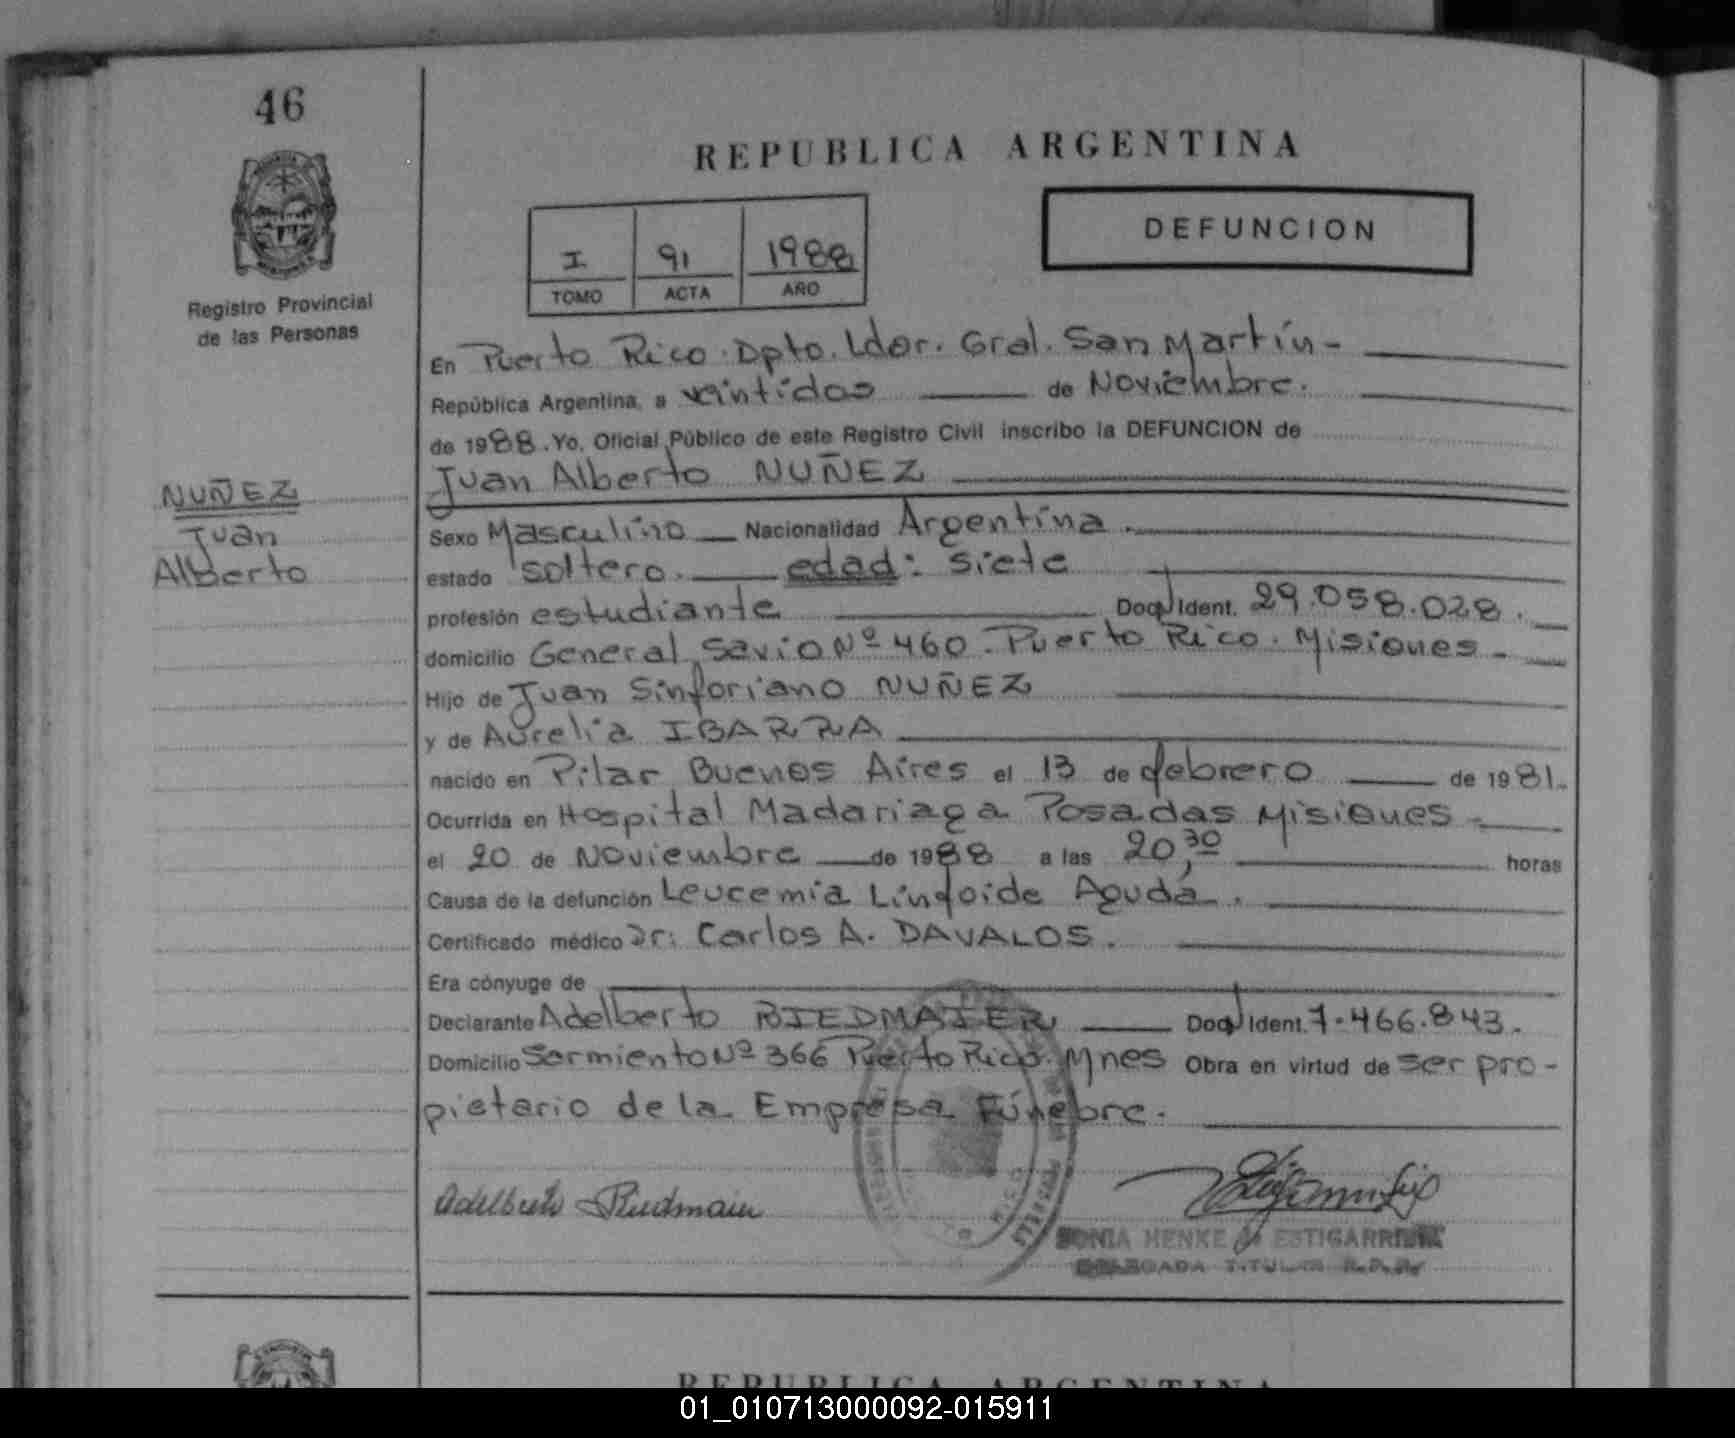 46
REPUBLICA ARGENTINA
Registro Provincial
de las Personas
I 91 1988
TOMO ACTA AÑO
DEFUNCION
En Puerto Rico. Dpto. Ldor. Gral. San Martín -
República Argentina, a veintidos de Noviembre.
de 1988. Yo, Oficial Público de este Registro Civil inscribo la DEFUNCION de
Juan Alberto NUÑEZ
NUÑEZ
Juan
Alberto
Sexo Masculino Nacionalidad Argentina.
estado soltero. edad: siete
profesión estudiante Doc. Ident. 29.058.028.
domicilio General Savio Nº 460. Puerto Rico. Misiones -
Hijo de Juan Sinforiano NUÑEZ
y de Aurelia IBARRA
nacido en Pilar Buenos Aires el 13 de febrero de 1981.
Ocurrida en Hospital Madariaga Posadas Misiones -
el 20 de Noviembre de 1988 a las 20,30 horas
Causa de la defunción Leucemia Linfoide Aguda.
Certificado médico Dr: Carlos A. DAVALOS.
Era cónyuge de
Declarante Adelberto RIEDMAIER Doc. Ident. 7.466.843.
Domicilio Sarmiento Nº 366 Puerto Rico. Mnes Obra en virtud de ser pro-
pietario de la Empresa Fúnebre.
Adelberto Riedmaier
SONIA HENKE de ESTIGARRIBIA
DELEGADA TITULAR R.P.P.
REPUBLICA ARGENTINA
01_010713000092-015911